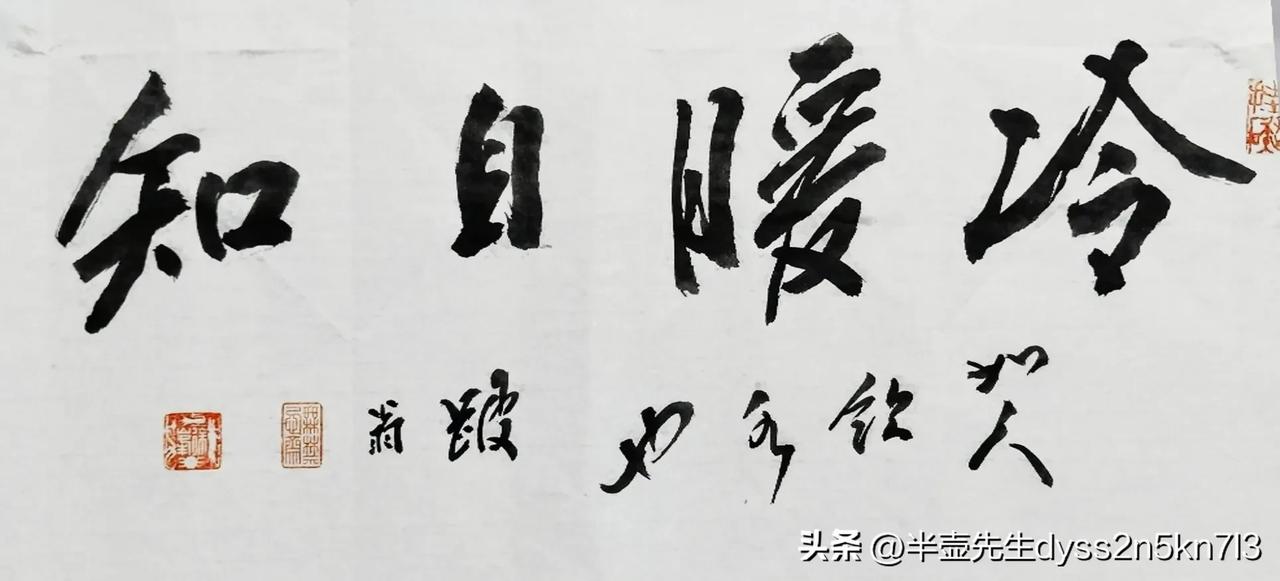 冷暖自知
如人飲水也 跛翁
头条 @半壶先生dyss2n5kn7l3